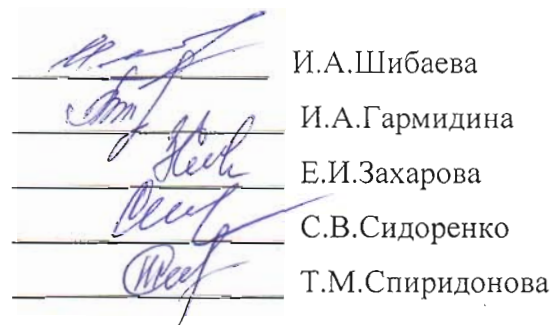 И.А.Шибаева
И.А.Гармидина
Е.И.Захарова
С.В.Сидоренко
Т.М.Спиридонова